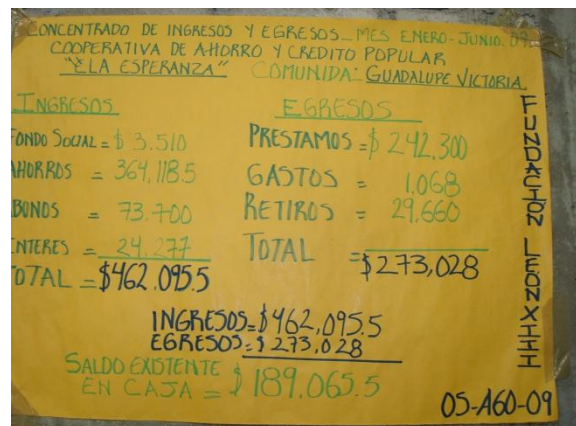 CONCENTRADO DE INGRESOS Y EGRESOS_ MES ENERO-JUNIO. 09
COOPERATIVA DE AHORRO Y CREDITO POPULAR
"LA ESPERANZA" COMUNIDA: GUADALUPE VICTORIA
INGRESOS
FONDO SOCIAL = $ 3.510
AHORROS = 364,118.5
ABONOS = 73.700
INTERES = 24.277
TOTAL = $462.095.5
EGRESOS
PRESTAMOS = $ 242,300
GASTOS = 1,068
RETIROS = 29.660
TOTAL = $273,028
INGRESOS=$462,095.5
EGRESOS=$273.028
SALDO EXISTENTE
EN CAJA = $189.065.5
FUNDACIÓN LEONXIII
05-AGO-09